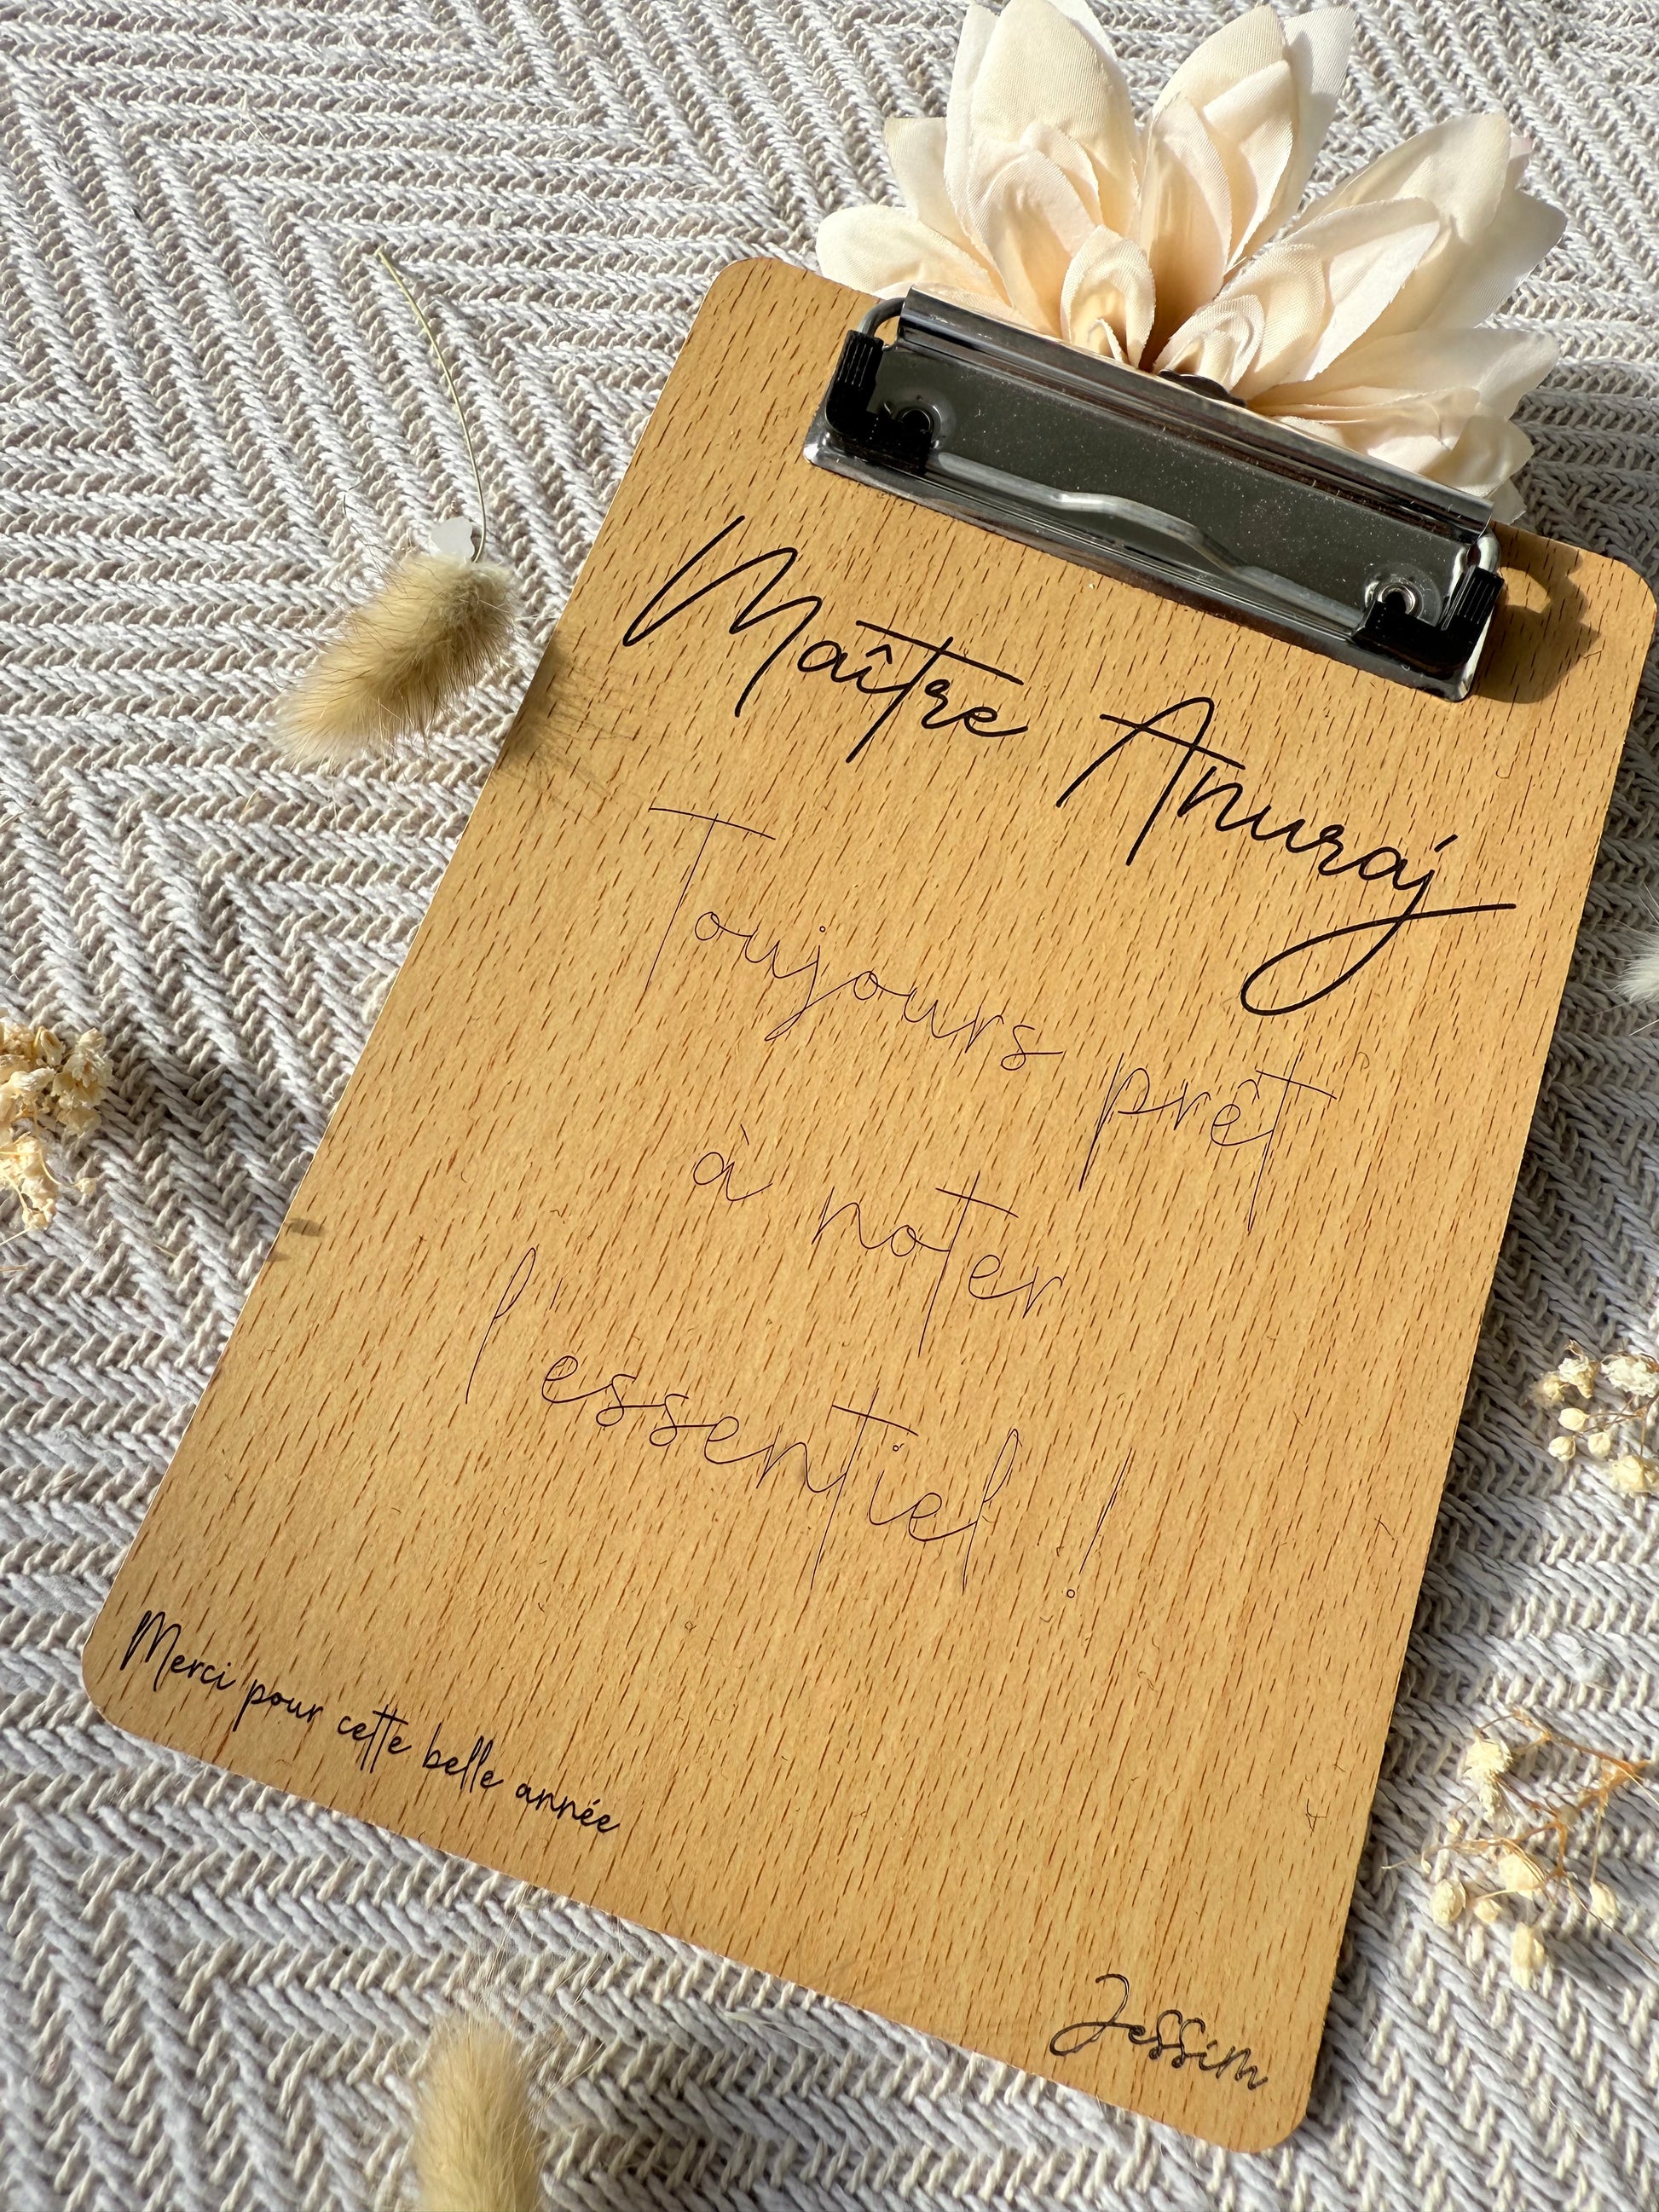 Maître Anuraj
Toujours prêt
à noter
l'essentiel !
Merci pour cette belle année
Jessim